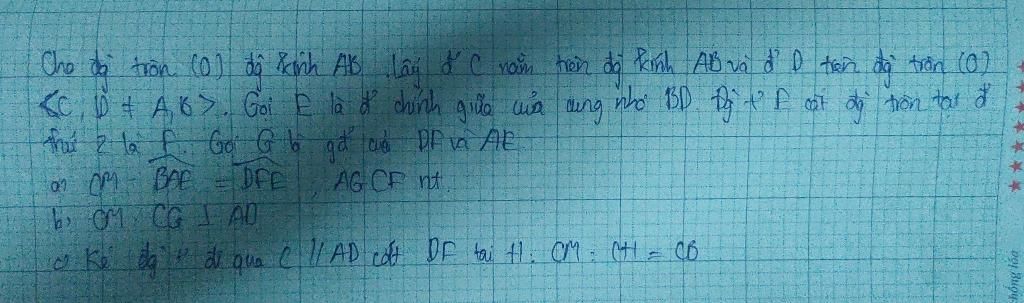 Cho đg tròn (O) đg kính AB, lấy đ' C nằm trên đg kính AB và đ' D trên đg tròn (O)
<C, D ≠ A, B>. Gọi E là đ' chính giữa của cung nhỏ BD. Đg t² E cắt đg tròn tại đ'
thứ 2 là F. Gọi G là gđ của DF và AE.
a) CM: BAE = DFE, AGCF nt.
b) CM: CG ⊥ AD
c) Kẻ đg t² đi qua C // AD cắt DF tại H: CM: CH = CB